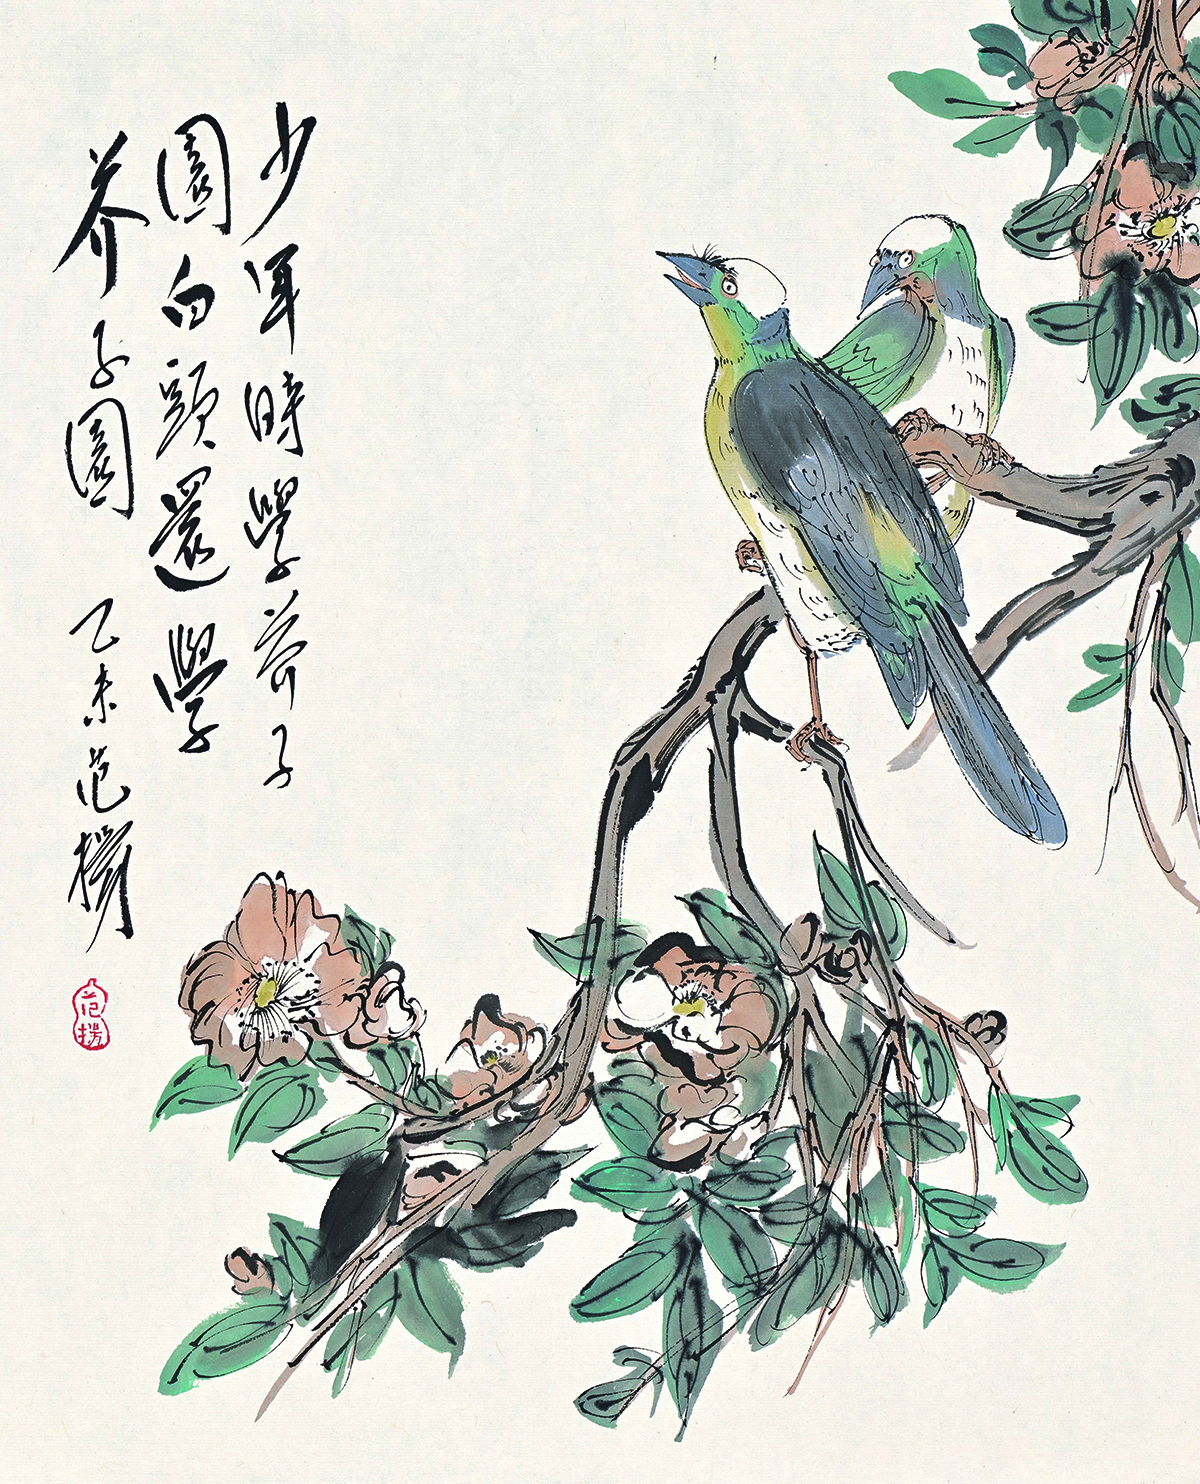 少年時學芥子
園白頭還學
芥子園
乙未范揚
范揚